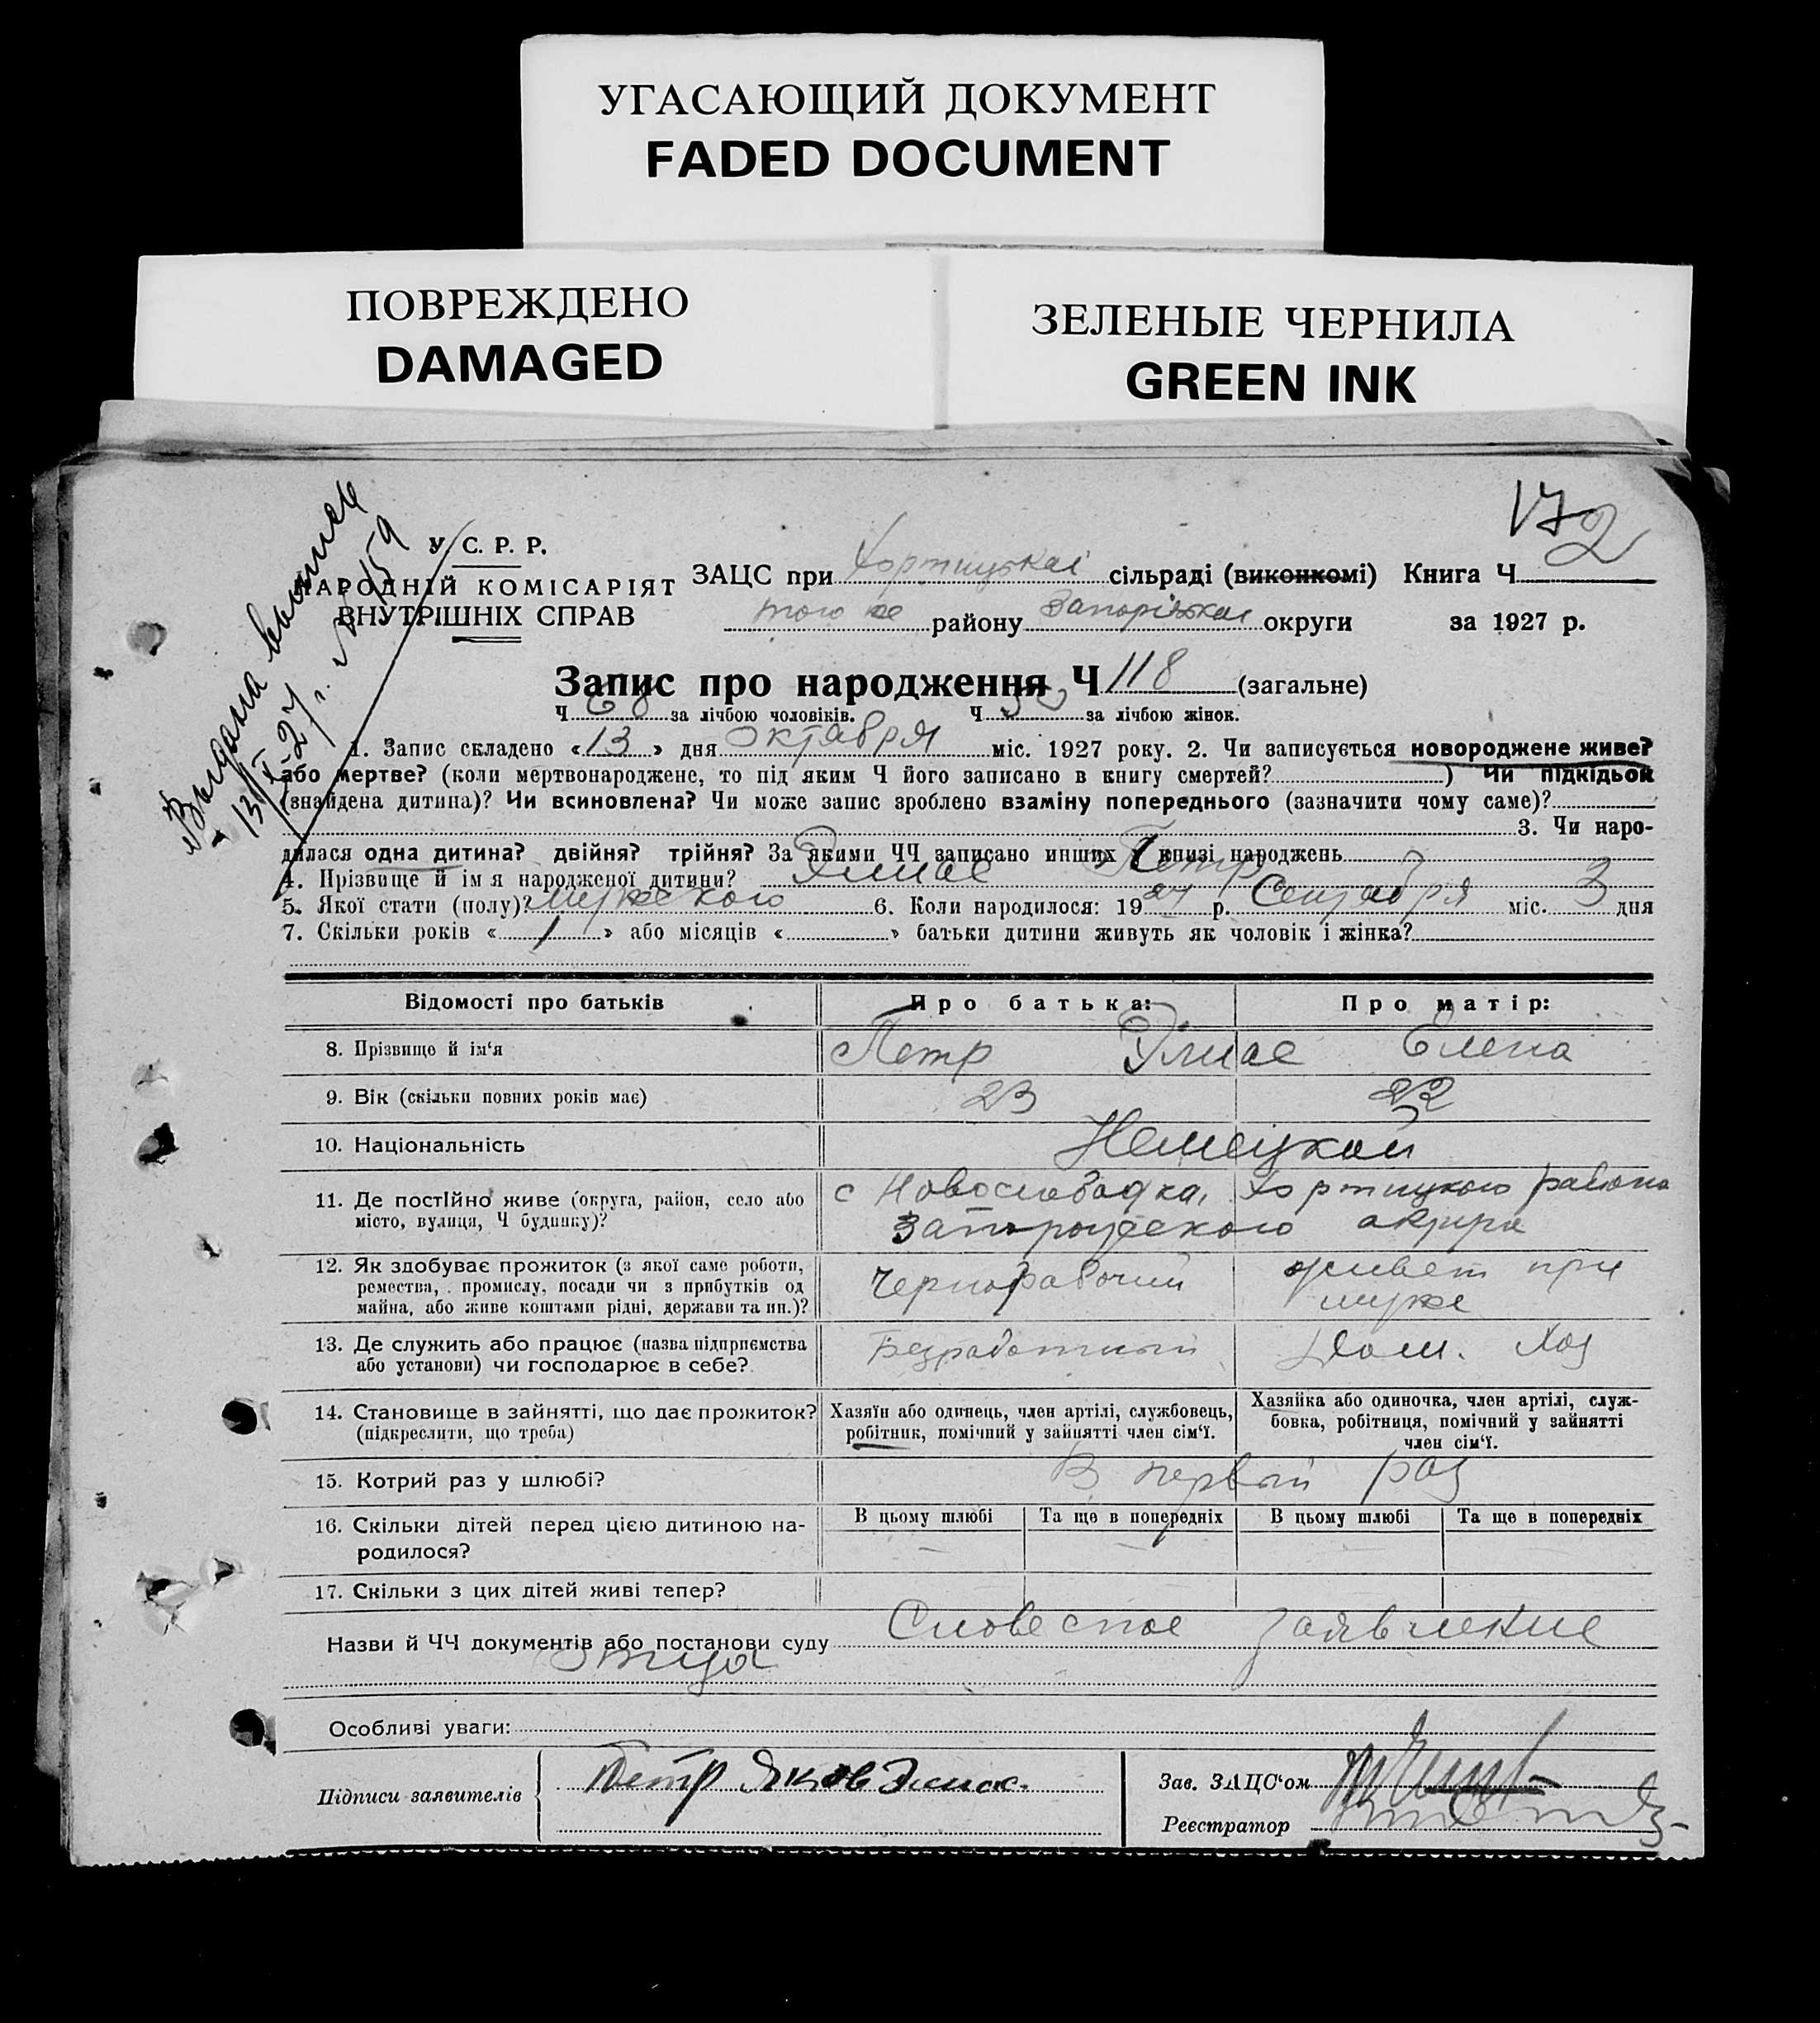 УГАСАЮЩИЙ ДОКУМЕНТ
FADED DOCUMENT
ПОВРЕЖДЕНО
DAMAGED
ЗЕЛЕНЫЕ ЧЕРНИЛА
GREEN INK
172
Выдана выписка
13/X-27 г. № 159
У. С. Р. Р.
НАРОДНІЙ КОМІСАРІЯТ
ВНУТРІШНІХ СПРАВ
ЗАЦС при Хортицькай сільраді (виконкомі) Книга Ч
того же району Запоріжжя округи за 1927 р.
Запис про народження Ч 118 (загальне)
Ч 68 за лічбою чоловіків. Ч 50 за лічбою жінок.
1. Запис складено «13» дня октября міс. 1927 року. 2. Чи записується новороджене живе?
або мертве? (коли мертвонароджене, то під яким Ч його записано в книгу смертей?) Чи підкідьок
(знайдена дитина)? Чи всиновлена? Чи може запис зроблено взаміну попереднього (зазначити чому саме)?
3. Чи наро-
дилася одна дитина? двійня? трійня? За якими ЧЧ записано инших у книзі народжень
4. Прізвище й ім я народженої дитини? Элиас Петр
5. Якої стати (полу)? мужского 6. Коли народилося: 1927 р. Сентября міс. 3 дня
7. Скільки років «1» або місяців « » батьки дитини живуть як чоловік і жінка?
Відомості про батьків Про батька: Про матір:
8. Прізвище й ім‘я Петр Элиас Елена
9. Вік (скільки повних років має) 23 22
10. Національність Немецкой
11. Де постІйно живе (округа, район, село або с Новослободка, Хортицкого района
місто, вулиця, Ч будинку)? Запорожского округа
12. Як здобуває прожиток (з якої саме роботи, Чернорабочий живет при
ремества, промислу, посади чи з прибутків од мужe
майна, або живе коштами рідні, держави та ин.)?
13. Де служить або працює (назва підприємства Безработный Дом. Хоз
або установи) чи господарює в себе?
14. Становище в зайнятті, що дає прожиток? Хазяїн або одинець, член артілі, службовець, Хазяйка або одиночка, член артілі, служ-
(підкреслити, що треба) робітник, помічний у зайнятті член сім‘ї. бовка, робітниця, помічний у зайнятті
член сім‘ї.
15. Котрий раз у шлюбі? В первый раз
16. Скільки дітей перед цією дитиною на- В цьому шлюбі Та ще в попередніх В цьому шлюбі Та ще в попередніх
родилося?
17. Скільки з цих дітей живі тепер?
Назви й ЧЧ документів або постанови суду Словесное заявление
отца
Особливі уваги:
Підписи заявителів Петр Яков Элиас.
Зав. ЗАЦС‘ом
Реєстратор